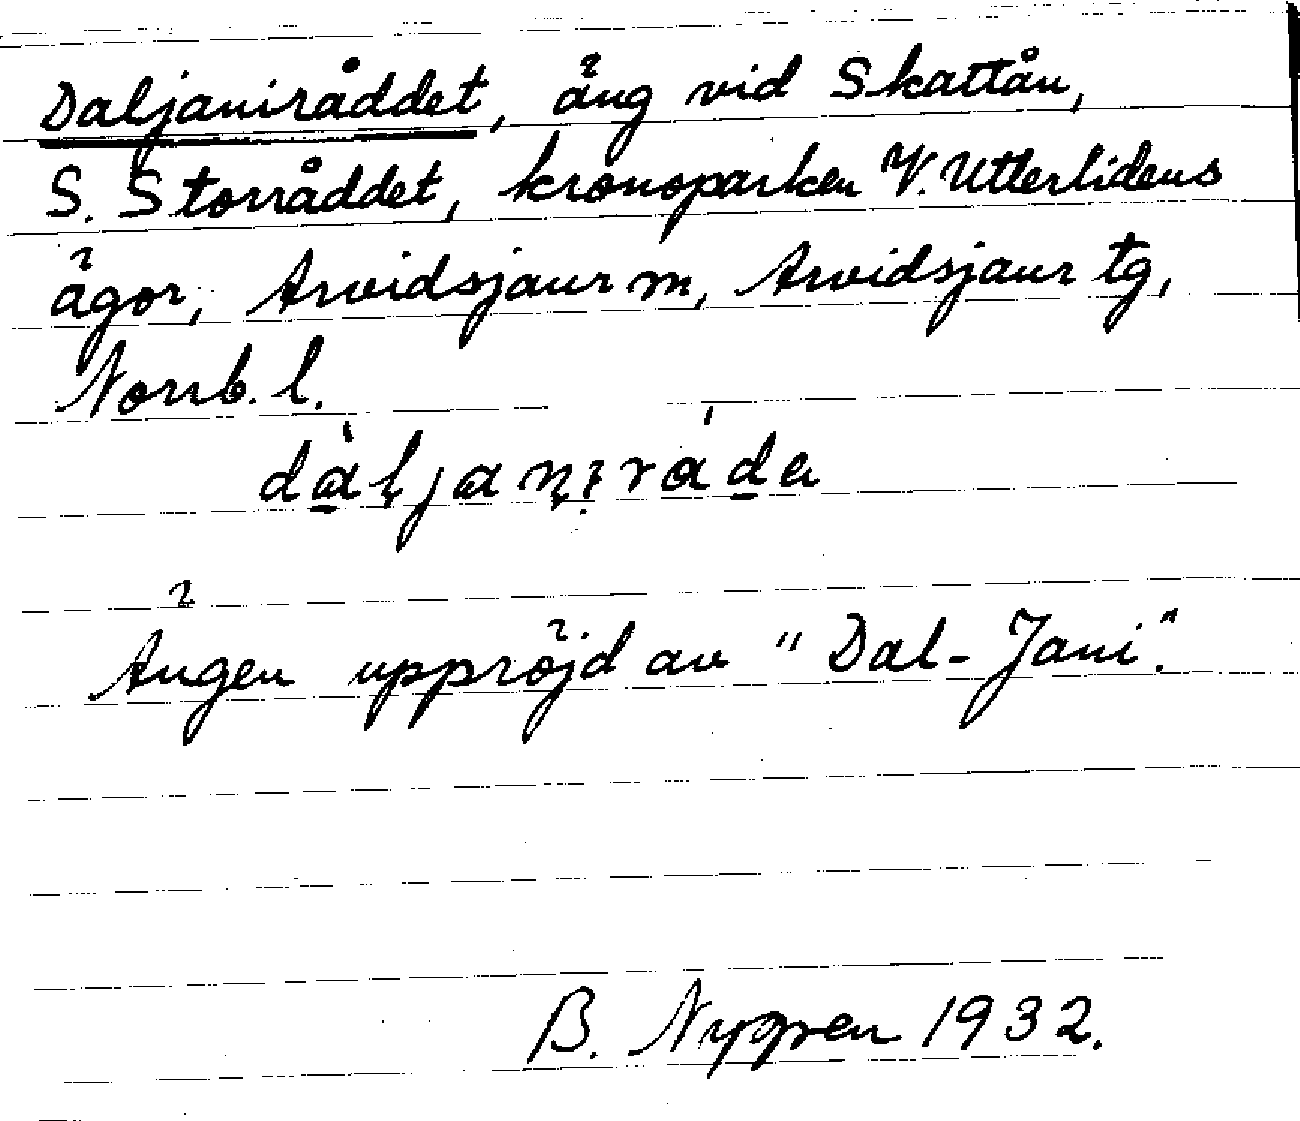 Daljaniråddet, äng vid Skattån,
S. Storråddet, kronoparken V. Utterlidens
ägor, Arvidsjaur sn, Arvidsjaur tg,
Norrb. l.
Ängen uppröjd av "Dal-Jani".
B. Nygren 1932.